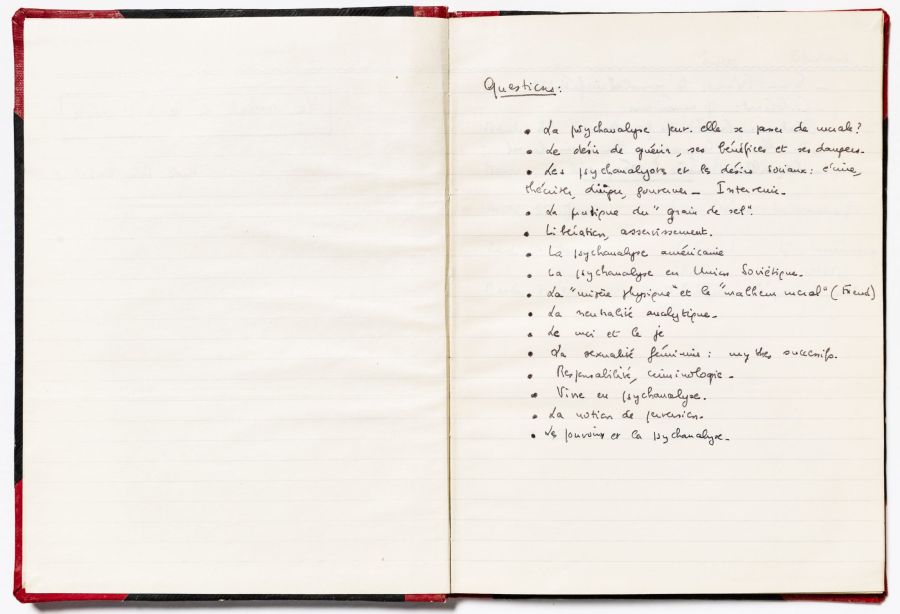 Questions :
• La psychanalyse peut-elle se passer de morale ?
• Le désir de guérir, ses bénéfices et ses dangers -
• Les psychanalystes et les désirs sociaux : écrire,
théoriser, diriger, gouverner - Intervenir -
• La pratique du "grain de sel".
• Libération, asservissement.
• La psychanalyse américaine
• La psychanalyse en Union Soviétique -
• La "misère physique" et le "malheur moral" (Freud)
• La neutralité analytique -
• Le moi et le je
• La sexualité féminine : mythes successifs.
• Responsabilité, criminologie -
• Vivre en psychanalyse.
• La notion de perversion -
• Le pouvoir et la psychanalyse -